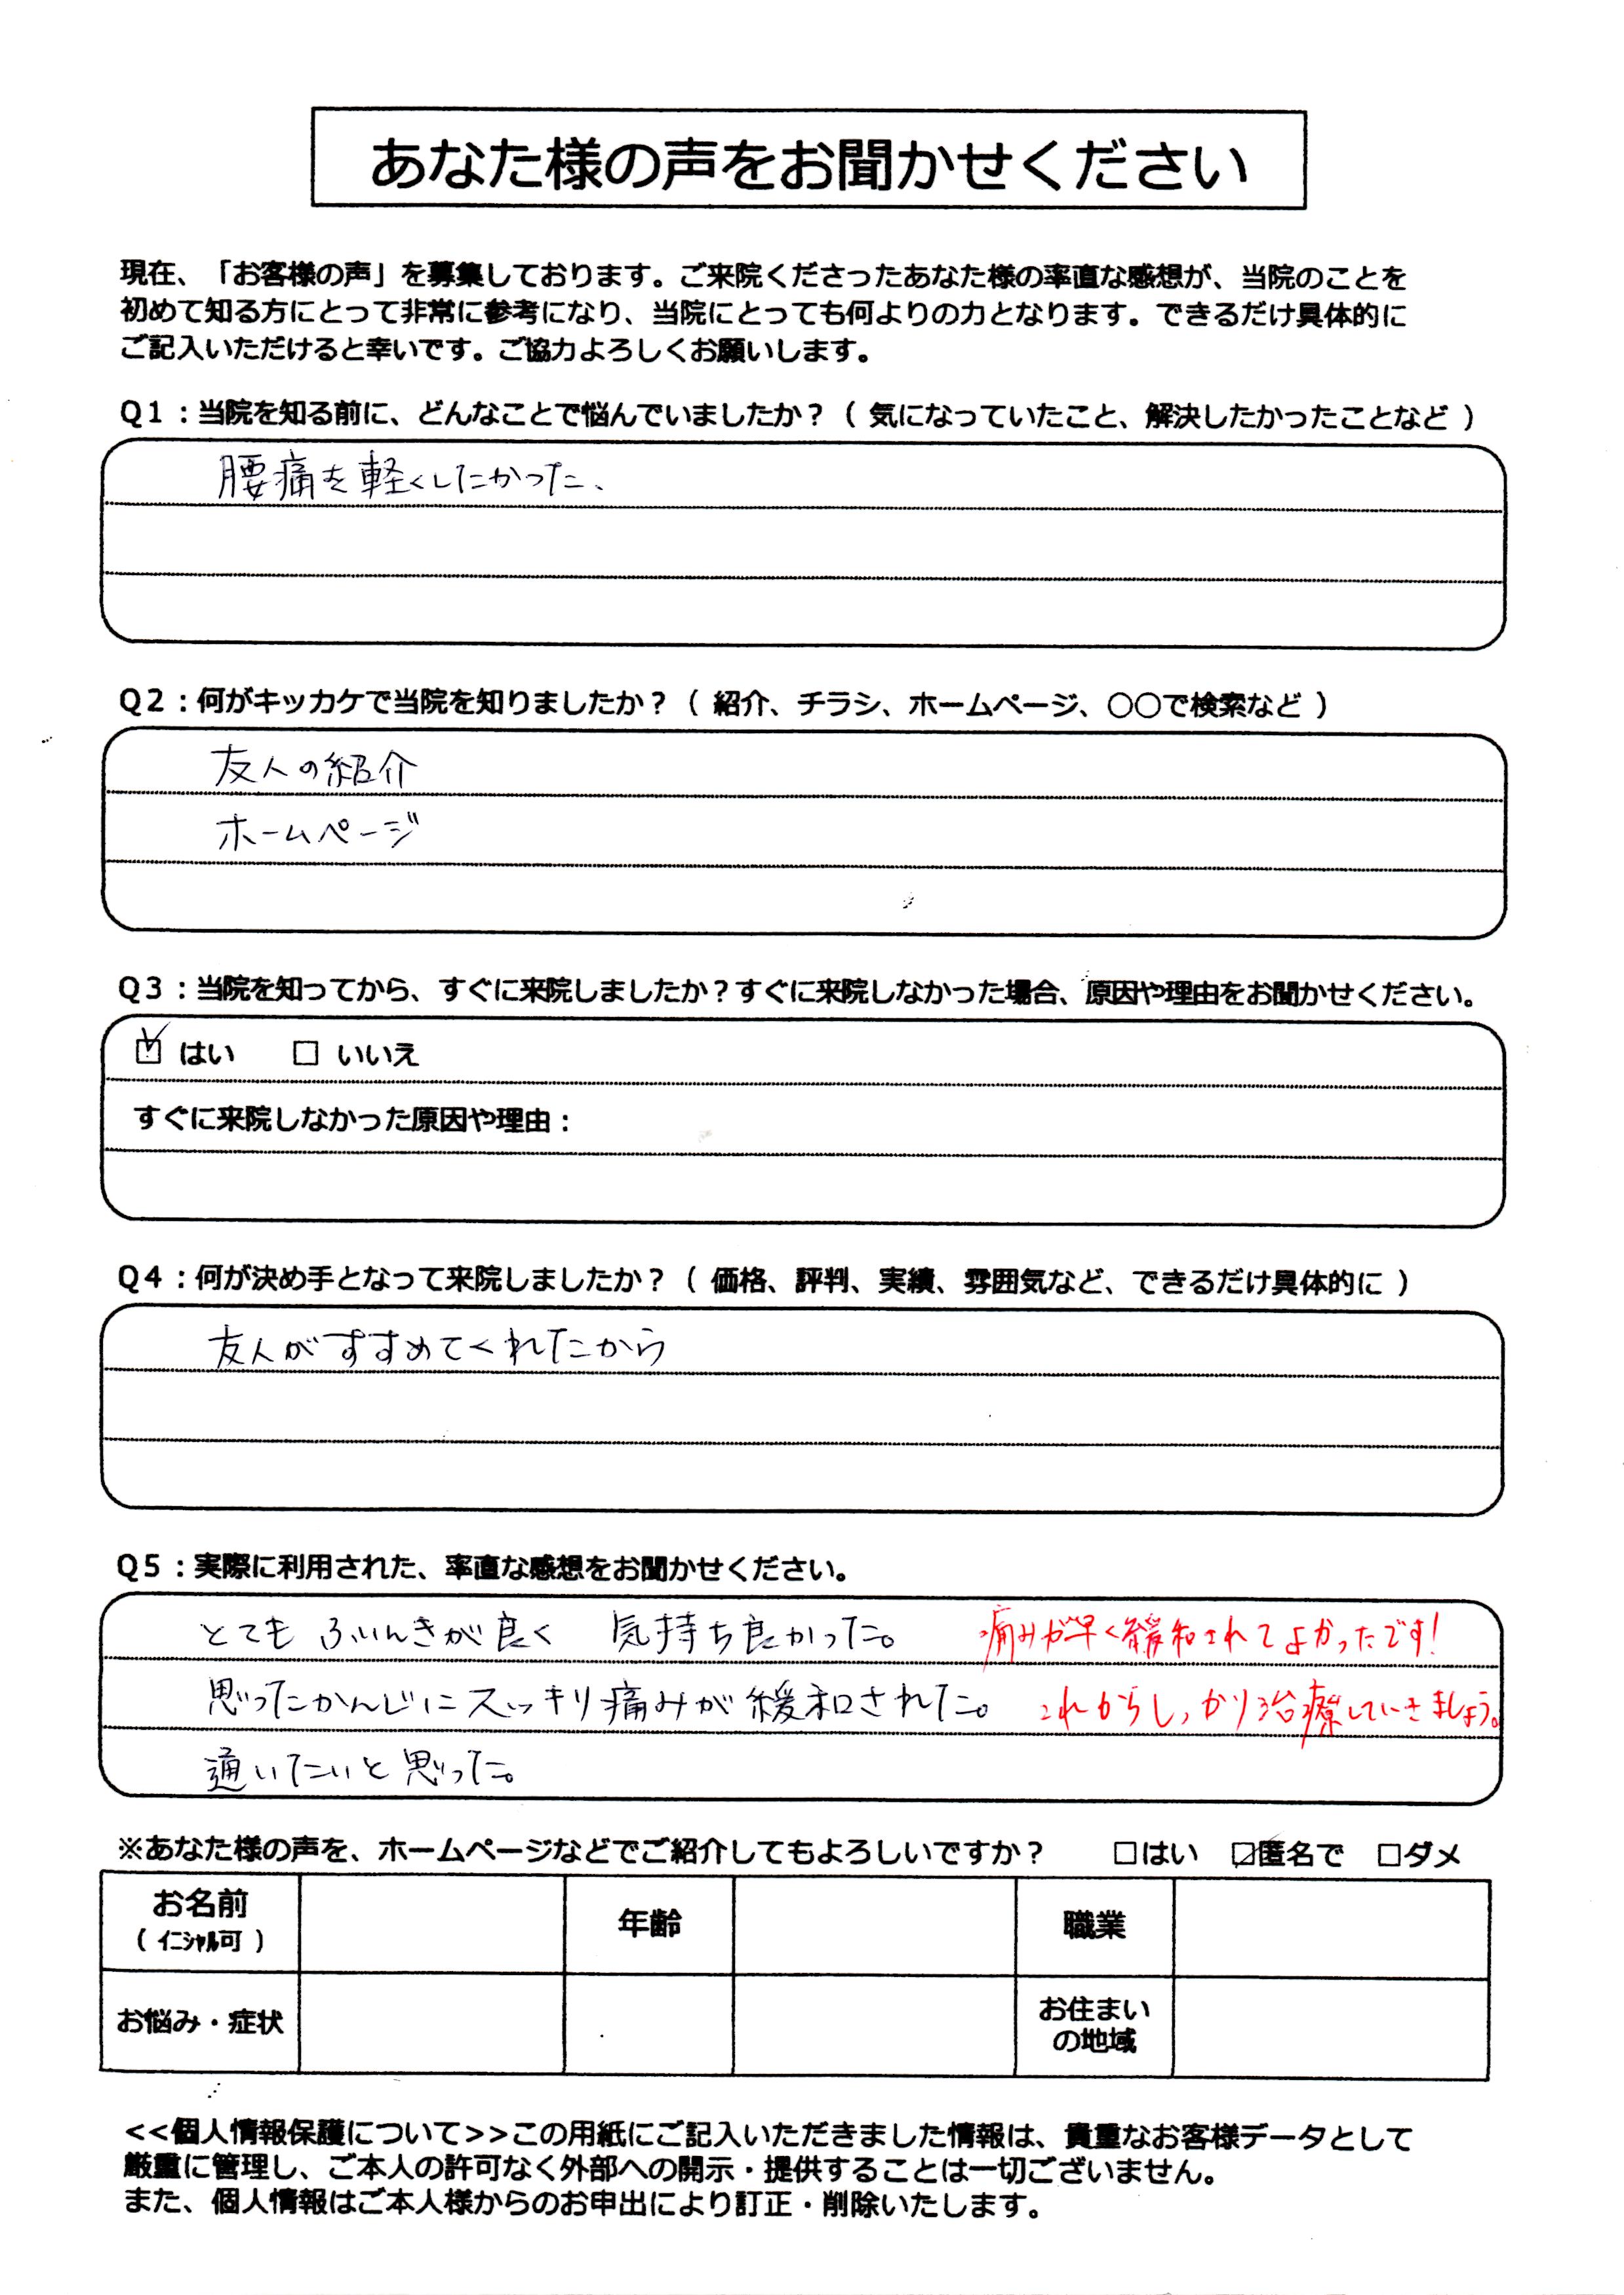 あなた様の声をお聞かせください
現在、「お客様の声」を募集しております。ご来院くださったあなた様の率直な感想が、当院のことを
初めて知る方にとって非常に参考になり、当院にとっても何よりの力となります。できるだけ具体的に
ご記入いただけると幸いです。ご協力よろしくお願いします。
Q1：当院を知る前に、どんなことで悩んでいましたか？（ 気になっていたこと、解決したかったことなど ）
腰痛を軽くしたかった、
Q2：何がキッカケで当院を知りましたか？（ 紹介、チラシ、ホームページ、○○で検索など ）
友人の紹介
ホームページ
Q3：当院を知ってから、すぐに来院しましたか？すぐに来院しなかった場合、原因や理由をお聞かせください。
☑ はい □ いいえ
すぐに来院しなかった原因や理由：
Q4：何が決め手となって来院しましたか？（ 価格、評判、実績、雰囲気など、できるだけ具体的に ）
友人がすすめてくれたから
Q5：実際に利用された、率直な感想をお聞かせください。
とても ふいんきが良く 気持ち良かった。 痛みが早く緩和されてよかったです！
思ったかんじにスッキリ痛みが緩和された。 これからしっかり治療していきましょう。
通いたいと思った。
※あなた様の声を、ホームページなどでご紹介してもよろしいですか？ □はい ☑匿名で □ダメ
お名前 年齢 職業
（ ｲﾆｼｬﾙ可 ）
お悩み・症状 お住まい
の地域
<<個人情報保護について>>この用紙にご記入いただきました情報は、貴重なお客様データとして
厳重に管理し、ご本人の許可なく外部への開示・提供することは一切ございません。
また、個人情報はご本人様からのお申出により訂正・削除いたします。